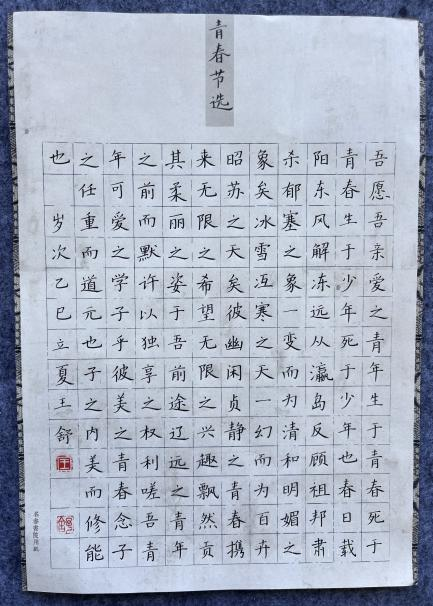 青春节选
吾愿吾亲爱之青年生于青春死于
青春生于少年死于少年也春日载
阳东风解冻远从瀛岛反顾祖邦肃
杀郁塞之象一变而为清和明媚之
象矣冰雪冱寒之天一幻而为百卉
昭苏之天矣彼幽闲贞静之青春携
来无限之希望无限之兴趣飘然贡
其柔丽之姿于吾前途辽远之青年
之前而默许以独享之权利嗟吾青
年可爱之学子乎彼美之青春念子
之任重而道元也子之内美而修能
也 岁次乙巳立夏王舒
王